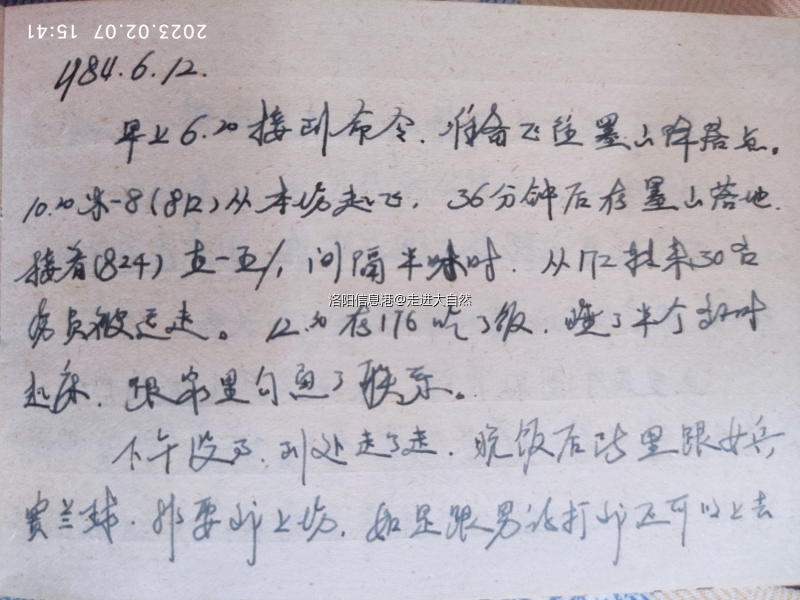 2023.02.07 15:41
1984.6.12.
早上6.20接到命令.准备飞往墨山降落点。
10.20米-8(812)从本场起飞,36分钟后在墨山落地.
接着(824)直一五,间隔半小时.从172转来30名
伤员被运走。12.30在176吃了饭.睡了半个多小时
起床.跟家里勾通了联系。
下午没事.到处走了走.晚饭后跟女兵
赛兰球.非要我上场.如是跟男打我还可以上去
洛阳信息港@走进大自然